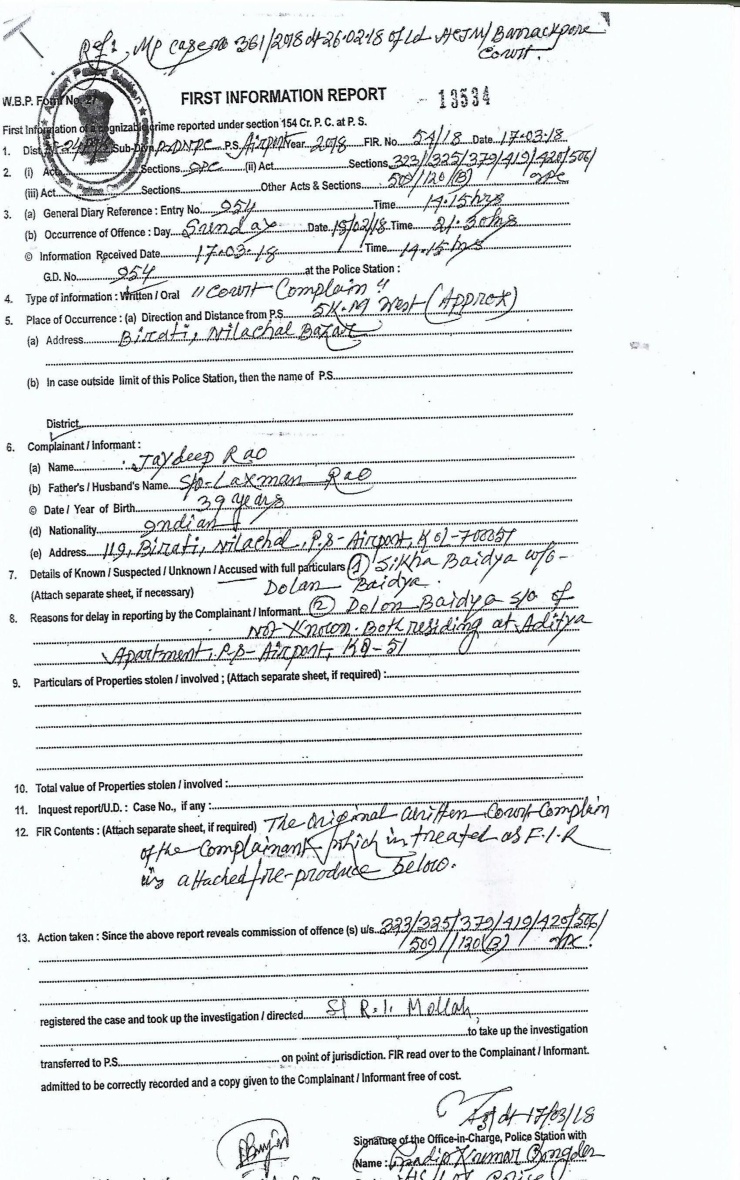 Ref: MP case no 361/2018 dt 26.02.18 of Ld ACJM/Barrackpore
Court.
W.B.P. Form No. 27
FIRST INFORMATION REPORT 13534
First Information of a cognizable crime reported under section 154 Cr. P. C. at P. S.
1. Dist. Sub-Divn P.S. Airport Year 2018 FIR. No. 54/18 Date 17-03-18
2. (i) Act Sections (ii) Act Sections 323/325/379/419/420/506/
(iii) Act Sections Other Acts & Sections 509/120(B) IPC
3. (a) General Diary Reference : Entry No. 954 Time 14.15hrs
(b) Occurrence of Offence : Day Sunday Date Time 21.30hrs
© Information Received Date 17-03-18 Time 14.15 hrs
G.D. No. 954 at the Police Station :
4. Type of information : Written / Oral "Court Complain"
5. Place of Occurrence : (a) Direction and Distance from P.S. 5K.M West (Approx)
(a) Address Birati, Nilachal Bazar
(b) In case outside limit of this Police Station, then the name of P.S.
District
6. Complainant / Informant :
(a) Name Jaydeep Rao
(b) Father's / Husband's Name S/o- Laxman Rao
© Date / Year of Birth 39 years
(d) Nationality Indian
(e) Address 119, Birati, Nilachal, P.S- Airport, Kol-700051
7. Details of Known / Suspected / Unknown / Accused with full particulars (1) Sikha Baidya w/o-
(Attach separate sheet, if necessary) Dolan Baidya.
8. Reasons for delay in reporting by the Complainant / Informant (2) Dolon Baidya s/o of
Not Known. Both residing at Aditya
Apartment, P.S- Airport, Kol-51
9. Particulars of Properties stolen / involved ; (Attach separate sheet, if required) :
10. Total value of Properties stolen / involved :
11. Inquest report/U.D. : Case No., if any :
12. FIR Contents : (Attach separate sheet, if required) The original written Court Complain
of the Complainant which in treated as F.I.R
is attached/re-produce below.
13. Action taken : Since the above report reveals commission of offence (s) u/s. 323/325/379/419/420/506/
509/120(B) IPC.
registered the case and took up the investigation / directed SI R.I. Mollah
to take up the investigation
transferred to P.S. on point of jurisdiction. FIR read over to the Complainant / Informant.
admitted to be correctly recorded and a copy given to the Complainant / Informant free of cost.
17/03/18
Signature of the Office-in-Charge, Police Station with
Name : Kumar